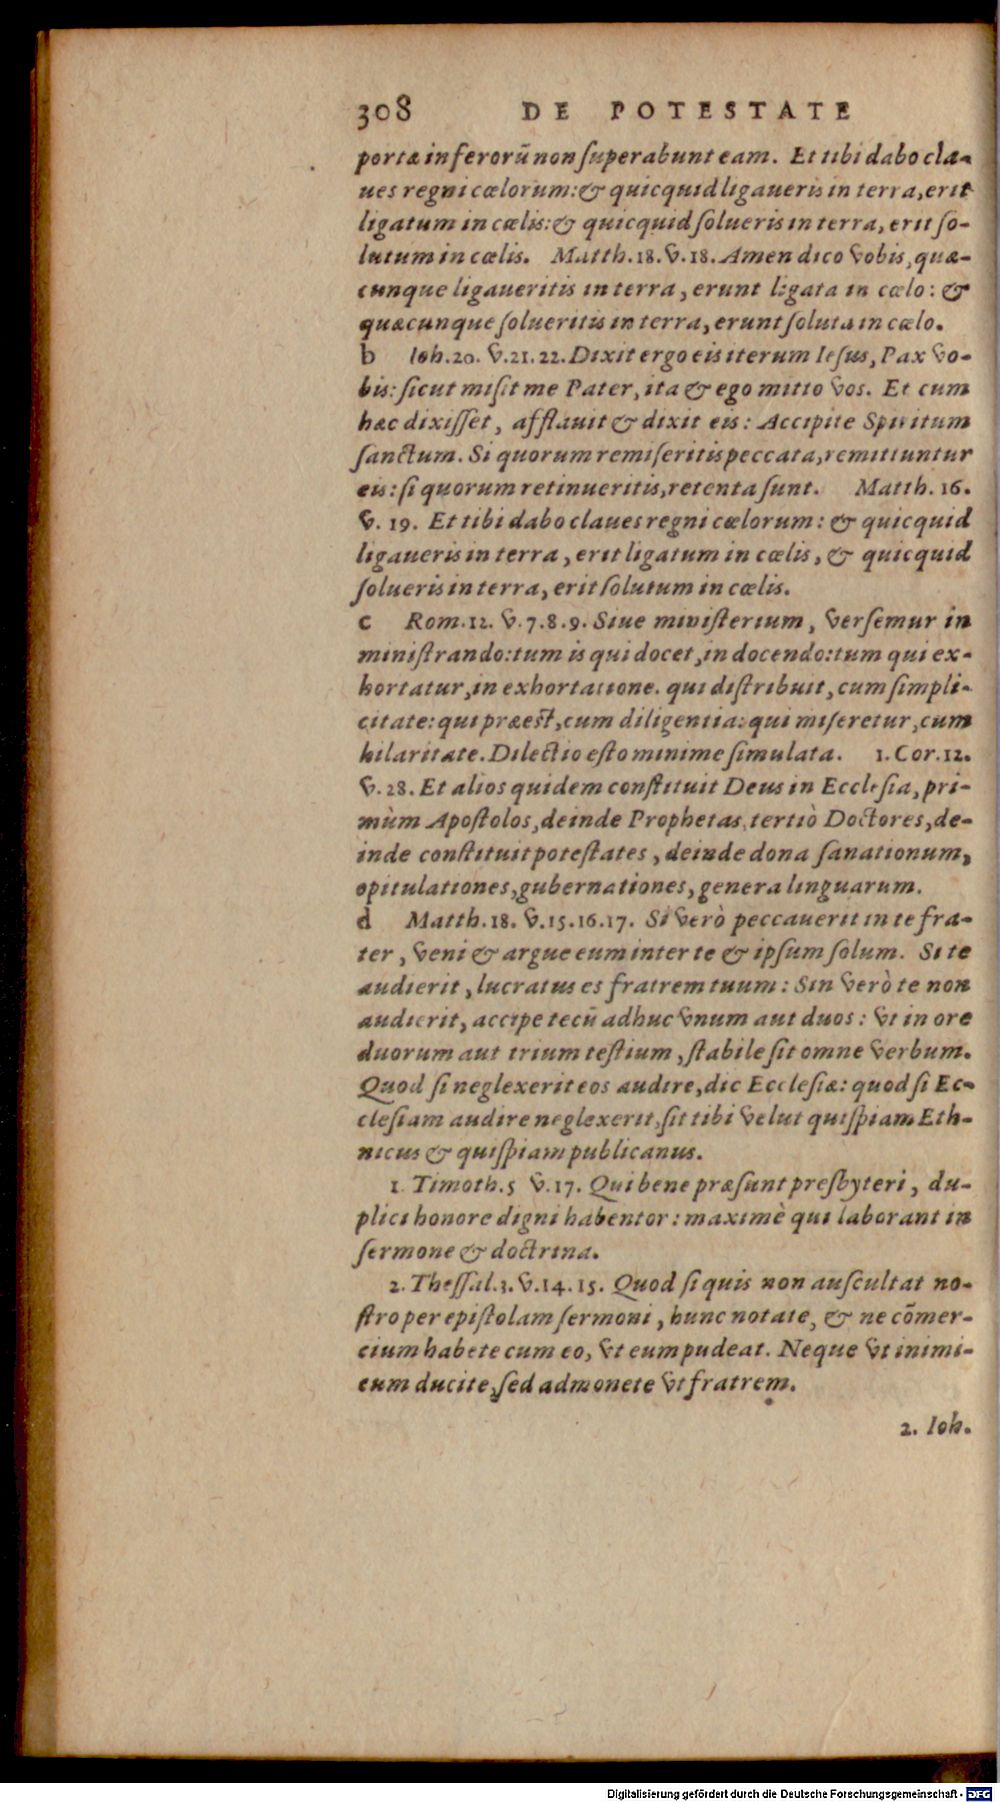 308 DE POTESTATE
portæ inferorũ non ſuperabunt eam. Et tibi dabo cla-
ues regni cœlorum: & quicquid ligaueris in terra, erit
ligatum in cœlis: & quicquid ſolueris in terra, erit ſo-
lutum in cœlis. Matth. 18. v. 18. Amen dico vobis, quæ-
cunque ligaueritis in terra, erunt ligata in cœlo: &
quæcunque ſolueritis in terra, erunt ſoluta in cœlo.
b Ioh. 20. v. 21. 22. Dixit ergo eis iterum Ieſus, Pax vo-
bis: ſicut miſit me Pater, ita & ego mitto vos. Et cum
hæc dixiſſet, afflauit & dixit eis: Accipite Spiritum
ſanctum. Si quorum remiſeritis peccata, remittuntur
eis: ſi quorum retinueritis, retenta ſunt. Matth. 16.
v. 19. Et tibi dabo claues regni cœlorum: & quicquid
ligaueris in terra, erit ligatum in cœlis, & quicquid
ſolueris in terra, erit ſolutum in cœlis.
c Rom. 12. v. 7. 8. 9. Siue miniſterium, verſemur in
miniſtrando: tum is qui docet, in docendo: tum qui ex-
hortatur, in exhortatione. qui diſtribuit, cum ſimpli-
citate: qui præeſt, cum diligentia: qui miſeretur, cum
hilaritate. Dilectio eſto minime ſimulata. 1. Cor. 12.
v. 28. Et alios quidem conſtituit Deus in Eccleſia, pri-
mùm Apoſtolos, deinde Prophetas, tertiò Doctores, de-
inde conſtituit poteſtates, deinde dona ſanationum,
opitulationes, gubernationes, genera linguarum.
d Matth. 18. v. 15. 16. 17. Si verò peccauerit in te fra-
ter, veni & argue eum inter te & ipſum ſolum. Si te
audierit, lucratus es fratrem tuum: Sin verò te non
audierit, accipe tecũ adhuc vnum aut duos: vt in ore
duorum aut trium teſtium, ſtabile ſit omne verbum.
Quod ſi neglexerit eos audire, dic Eccleſiæ: quod ſi Ec-
cleſiam audire neglexerit, ſit tibi velut quiſpiam Eth-
nicus & quiſpiam publicanus.
1. Timoth. 5 v. 17. Qui bene præſunt presbyteri, du-
plici honore digni habentor: maximè qui laborant in
ſermone & doctrina.
2. Theſſal. 3. v. 14. 15. Quod ſi quis non auſcultat no-
ſtro per epiſtolam ſermoni, hunc notate, & ne cõmer-
cium habete cum eo, vt eum pudeat. Neque vt inimi-
cum ducite, ſed admonete vt fratrem.
2. Ioh.
Digitalisierung gefördert durch die Deutsche Forschungsgemeinschaft - DFG